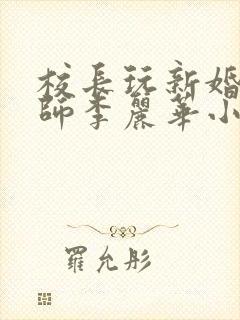 校長玩新婚
師李麗華小
羅允彤